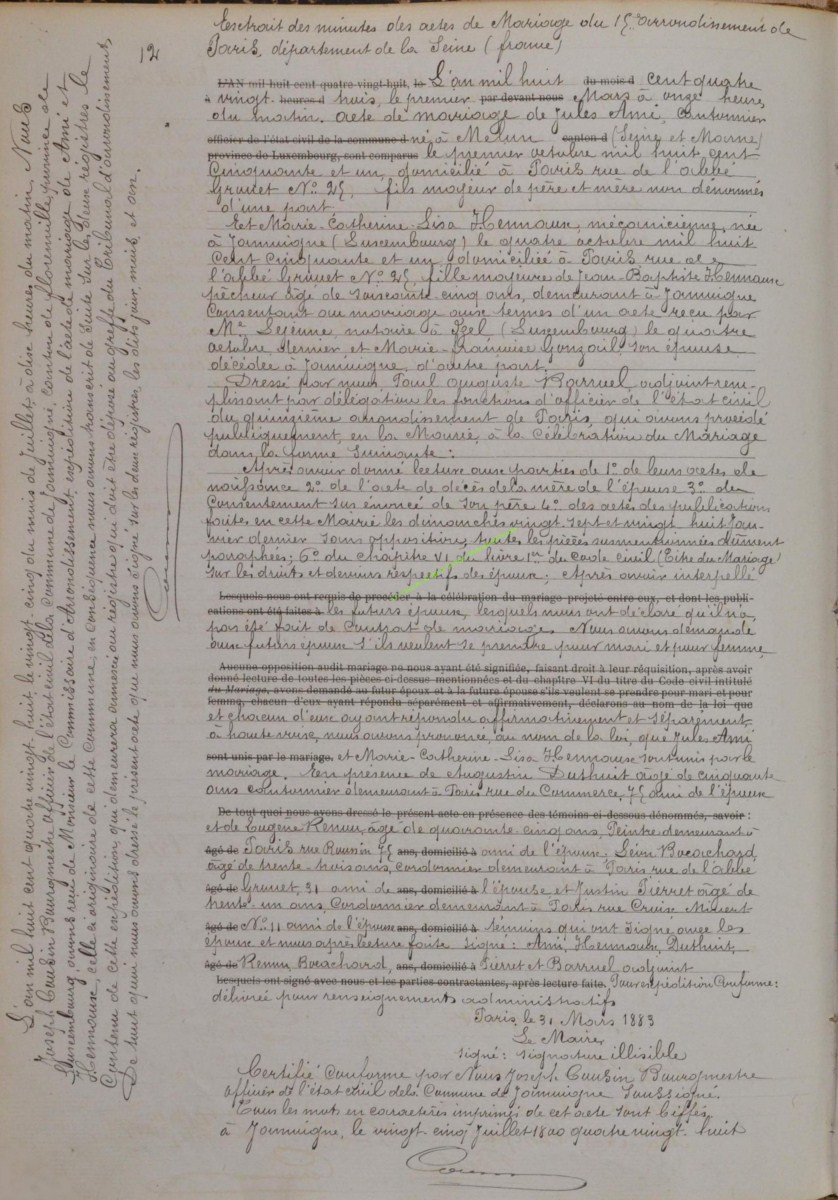 Extrait des minutes des actes de Mariage du 15e arrondissement de
Paris, département de la Seine (france)
12
L'AN mil huit cent quatre-vingt-huit, le L'an mil huit du mois d cent quatre
à vingt heures d huit, le premier par devant nous Mars à onze heures
du matin. acte de mariage de Jules Ami, Cantonnier
officier de l'état civil de la commune d né à Melun canton d (Seine et Marne)
province de Luxembourg, sont comparus le premier octobre mil huit cent
Cinquante et un, domicilié à Paris rue de l'abbé
Groult No 25, fils majeur de père et mère non dénommés
d'une part
Et Marie-Catherine-Lisa Hennaux, mécanicienne, née
à Jamoigne (Luxembourg) le quatre octobre mil huit
Cent Cinquante et un domiciliée à Paris rue de
l'abbé Gruuet No 25, fille majeure de Jean-Baptiste Hennaux
pêcheur âgé de soixante cinq ans, demeurant à Jamoigne
Consentant au mariage aux termes d'un acte reçu par
Me Lejeune, notaire à Izel (Luxembourg) le quatre
octobre dernier et Marie-françoise Gonzail, son épouse
décédée à Jamoigne, d'autre part.
Dressé par nous, Paul auguste Barruel, adjoint rem-
plissant par délégation les fonctions d'officier de l'état civil
du quinzième arrondissement de Paris, qui avons procédé
publiquement, en la Mairie, à la Célébration du Mariage
dans la forme suivante:
Après avoir donné lecture aux parties de 1o de leurs actes de
naissance 2o de l'acte de décès de la mère de l'épouse 3o du
Consentement sus énoncé de son père 4o des actes des publications
faites en cette Mairie les dimanches vingt sept et vingt huit Jan-
vier dernier sans opposition, toutes les pièces susmentionnées dûment
paraphées; 6o du chapitre VI du livre 1er du Code Civil (Titre du Mariage)
sur les droits et devoirs respectifs des époux; Après avoir interpellé
Lesquels nous ont requis de procéder à la célébration du mariage projeté entre eux, et dont les publi-
cations ont été faites à les futurs époux, lesquels nous ont déclaré qu'il n'a
pas été fait de Contrat de mariage. Nous avons demandé
aux futurs époux s'ils veulent se prendre pour mari et pour femme
Aucune opposition audit mariage ne nous ayant été signifiée, faisant droit à leur réquisition, après avoir
donné lecture de toutes les pièces ci-dessus mentionnées et du chapitre VI du titre du Code civil intitulé
du Mariage, avons demandé au futur époux et à la future épouse s'ils veulent se prendre pour mari et pour
femme, chacun d'eux ayant répondu séparément et affirmativement, déclarons au nom de la loi que
et chacun d'eux ayant répondu affirmativement et séparément
à haute voix, nous avons prononcé, au nom de la loi, que Jules Ami
sont unis par le mariage. et Marie-Catherine-Lisa Hennaux sont unis par le
mariage. En présence de Augustin Duthuit âgé de cinquante
ans cantonnier demeurant à Paris rue du Commerce, 75 ami de l'époux
De tout quoi nous avons dressé le présent acte en présence des témoins ci-dessous dénommés, savoir:
et de Eugène Renuy, âgé de quarante-cinq ans, Peintre demeurant à
âgé de Paris rue Roussin 75 ans, domicilié à ami de l'époux. Léon Bocachard
âgé de trente-trois ans, Cordonnier demeurant à Paris rue de l'abbé
âgé de Gruuet, 31 ami de ans, domicilié à l'épouse et Justin Pierret âgé de
trente un ans, Cordonnier demeurant à Paris rue Croix Nivert
âgé de No 11 ami de l'épouse ans, domicilié à témoins qui ont signé avec les
époux et nous après lecture faite signé: Ami, Hennaux, Duthuit,
âgé de Renuy, Bocachard, ans, domicilié à Pierret et Barruel adjoint
Lesquels ont signé avec nous et les parties contractantes, après lecture faite. Pour expédition Conforme:
délivrée pour renseignements administratifs
Paris, le 31 Mars 1883
Le Maire,
signé: signature illisible
Certifié Conforme par Nous Joseph Causin Bourgmestre
officier de l'état civil de la Commune de Jamoigne Soussigné.
Tous les mots en caractères imprimés de cet acte sont biffés
à Jamoigne, le vingt cinq Juillet quatre vingt-huit
L'an mil huit cent quatre vingt huit, le vingt-cinq du mois de Juillet, à dix heures du matin, Nous
Joseph Causin Bourgmestre officier de l'état civil de la commune de Jamoigne, canton de florenville, province de
Luxembourg, avons reçu de Monsieur le Commissaire d'Arrondissement, expédition de l'acte de mariage de Ami et
Hennaux, celle ci originaire de cette Commune, en conséquence nous avons transcrit de suite sur les deux régistres le
Contenu de cette expédition qui demeurera annexée au régistre qui doit être déposé au greffe du Tribunal d'arrondissement,
De tout quoi nous avons dressé le présent acte que nous avons signé sur les deux régistres, les dits jour, mois et an.